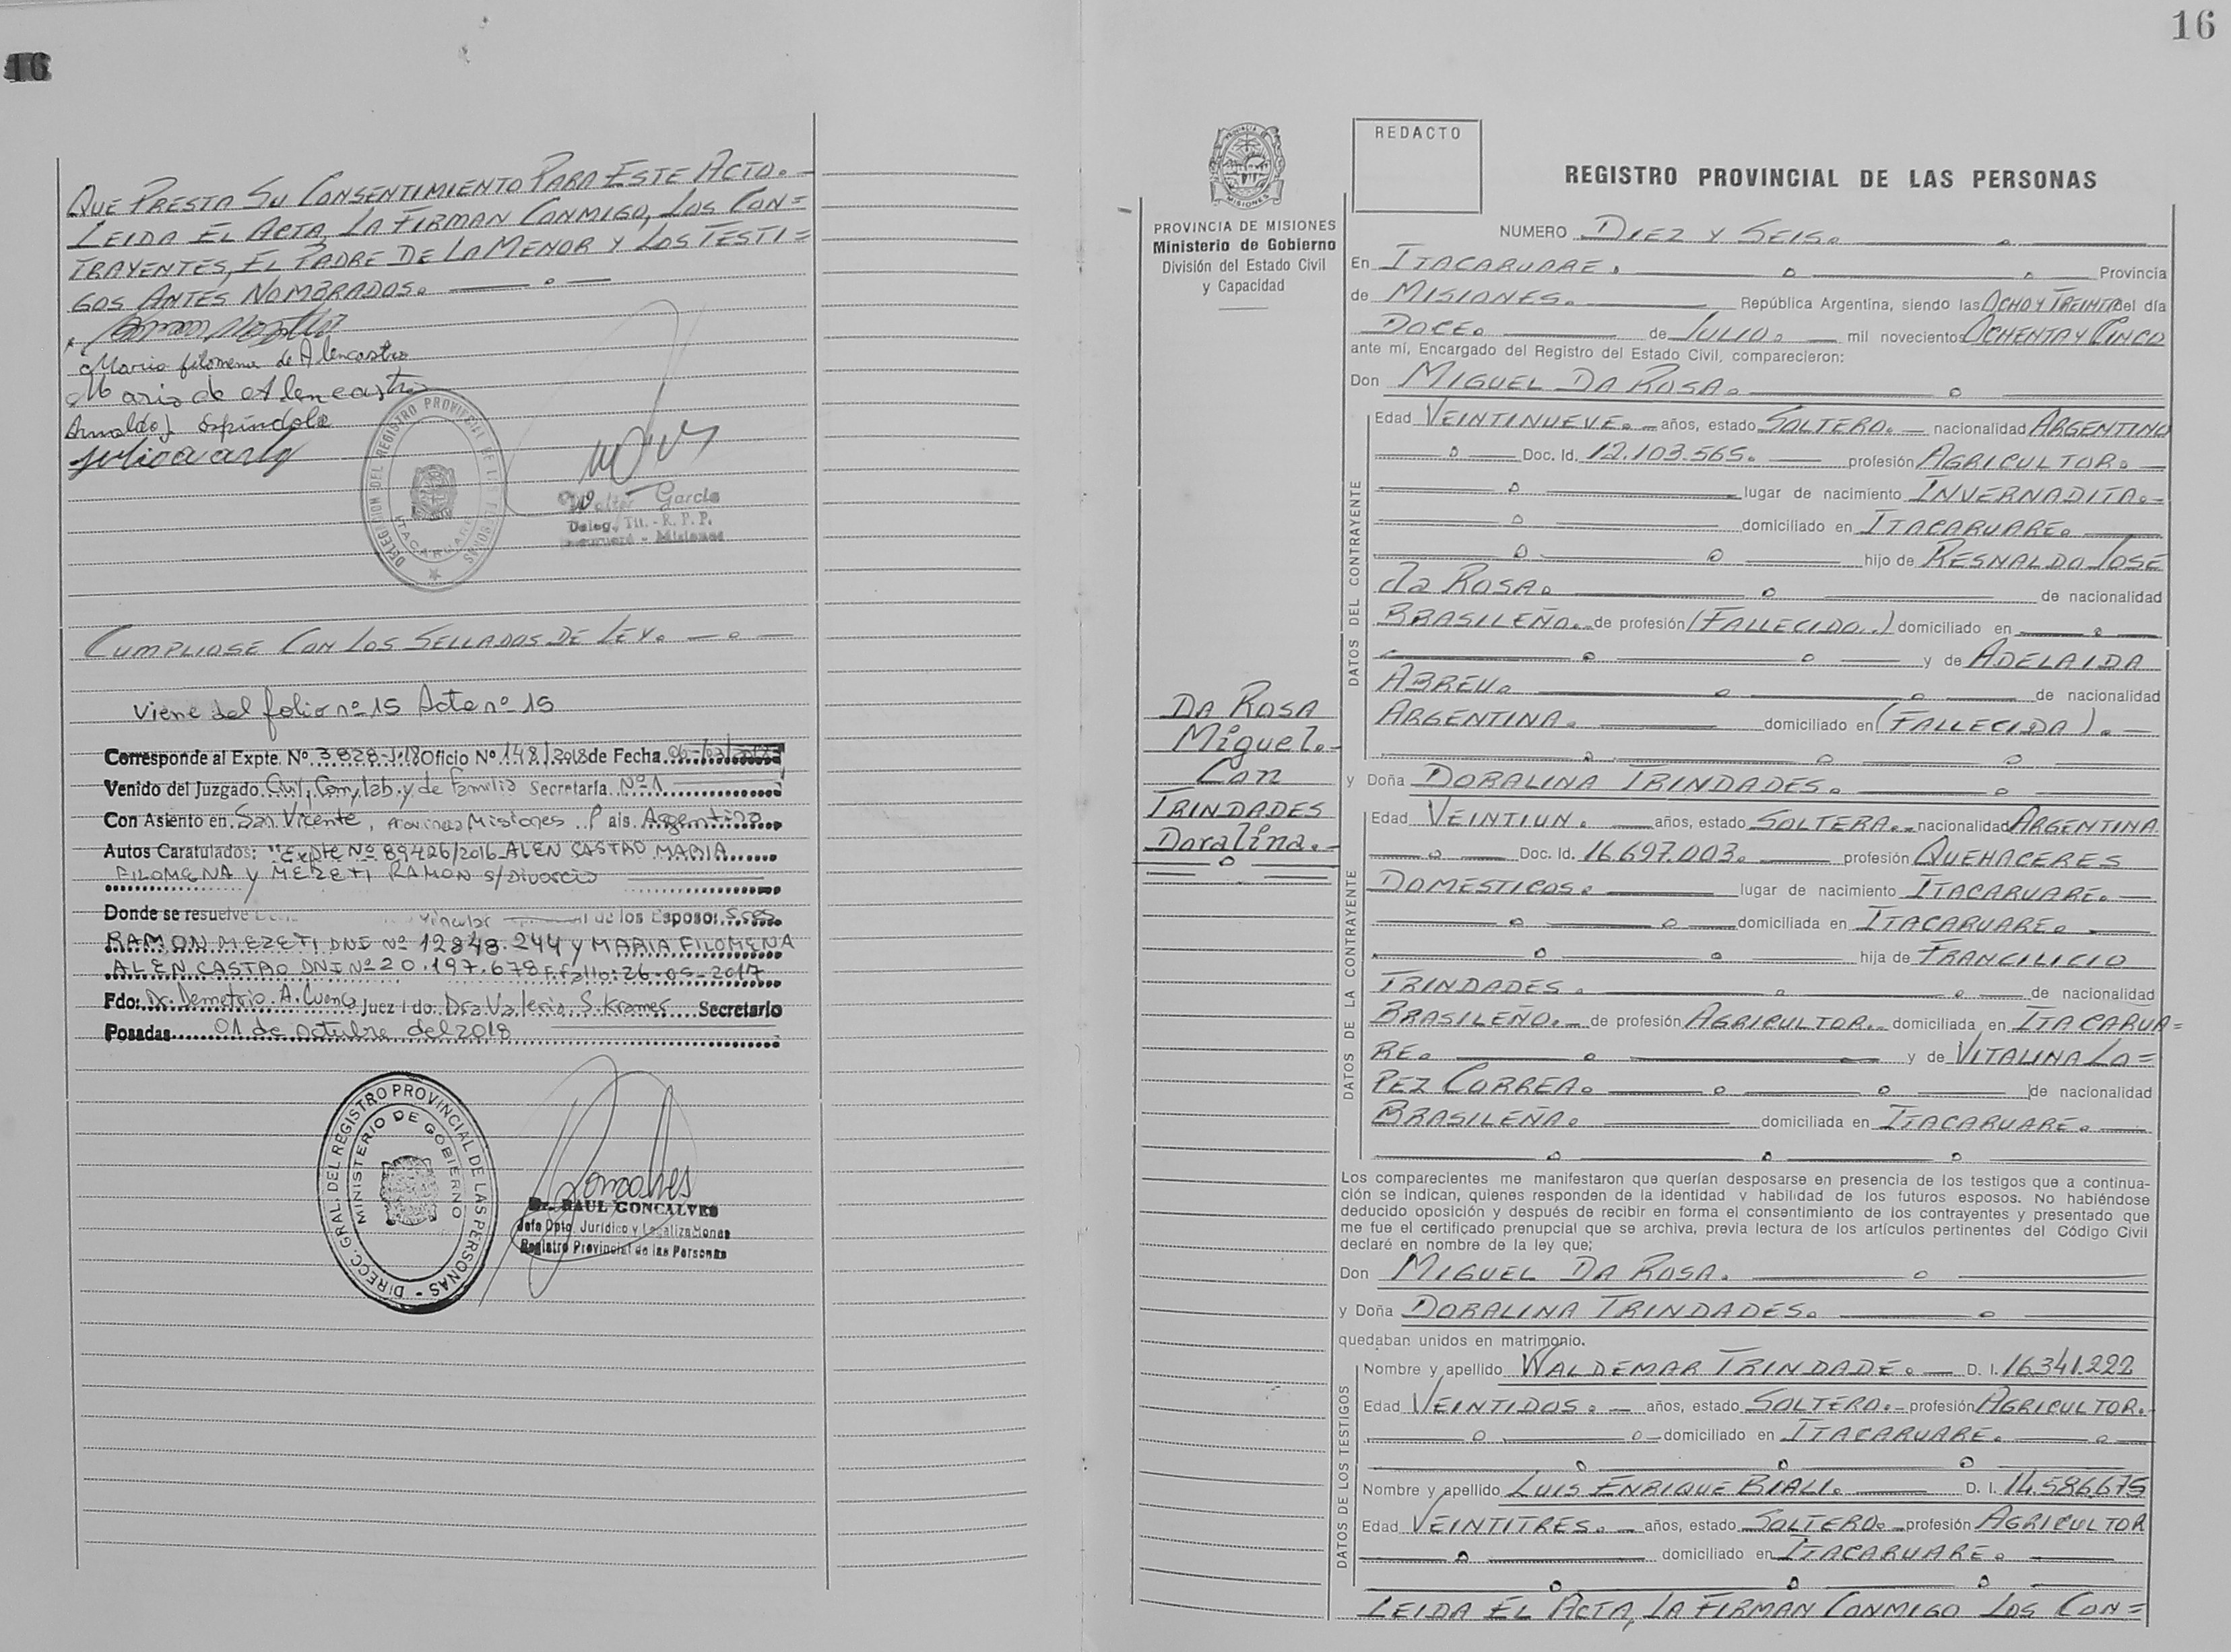 16
QUE PRESTA SU CONSENTIMIENTO PARA ESTE ACTO.
LEIDA EL ACTA, LA FIRMAN CONMIGO, LOS CON=
TRAYENTES, EL PADRE DE LA MENOR Y LOS TESTI=
GOS ANTES NOMBRADOS.
Maria filomena de Alencastro
Mario de Alencastro
Arnaldo J Espindola
DELEGACION DEL REGISTRO PROVINCIAL DE LAS PERSONAS
ITACARUARE
Walter Garcia
Deleg. Tit. - R. P. P.
Itacaruaré - Misiones
CUMPLIOSE CON LOS SELLADOS DE LEY.
Viene del folio nº 15 Acta nº 15
Corresponde al Expte. Nº 3828-J-18 Oficio Nº 148/2018 de Fecha
Venido del Juzgado Civil, Com, lab. y de Familia Secretaría Nº 1
Con Asiento en San Vicente, provincia Misiones Pais Argentina
Autos Caratulados: "Expte Nº 89426/2016 ALEN CASTRO MARIA
FILOMENA y MEZETI RAMON s/Divorcio
Donde se resuelve vincular de los Esposos Sres
RAMON MEZETI DNI Nº 12848.244 y MARIA FILOMENA
ALEN CASTRO DNI Nº 20.197.678 F. fallo: 26-05-2017
Fdo: Dr. Demetrio A. Cuenca Juez Fdo: Dra Valeria S. Kramer Secretario
Posadas 01 de octubre del 2018
DIRECC. GRAL. DEL REGISTRO PROVINCIAL DE LAS PERSONAS
MINISTERIO DE GOBIERNO
Dr. RAUL GONCALVES
Jefe Dpto. Jurídico y Legalizaciones
Registro Provincial de las Personas
16
PROVINCIA DE MISIONES
Ministerio de Gobierno
División del Estado Civil
y Capacidad
DA ROSA
Miguel.
Con
TRINDADES
Doralina.
REDACTO
REGISTRO PROVINCIAL DE LAS PERSONAS
NUMERO DIEZ Y SEIS.
En ITACARUARE. Provincia
de MISIONES. República Argentina, siendo las OCHO Y TREINTA del día
DOCE. de JULIO. mil novecientos OCHENTA Y CINCO
ante mí, Encargado del Registro del Estado Civil, comparecieron:
Don MIGUEL DA ROSA.
DATOS DEL CONTRAYENTE
Edad VEINTINUEVE. años, estado SOLTERO. nacionalidad ARGENTINO
Doc. Id. 12.103.565. profesión AGRICULTOR.
lugar de nacimiento INVERNADITA.
domiciliado en ITACARUARE.
hijo de RESNALDO JOSE
da ROSA. de nacionalidad
BRASILEÑO. de profesión (FALLECIDO.) domiciliado en
y de ADELAIDA
ABREU. de nacionalidad
ARGENTINA. domiciliado en (FALLECIDA).
y Doña DORALINA TRINDADES.
DATOS DE LA CONTRAYENTE
Edad VEINTIUN. años, estado SOLTERA. nacionalidad ARGENTINA
Doc. Id. 16.697.003. profesión QUEHACERES
DOMESTICOS. lugar de nacimiento ITACARUARE.
domiciliada en ITACARUARE.
hija de FRANCILICIO
TRINDADES. de nacionalidad
BRASILEÑO. de profesión AGRICULTOR. domiciliada en ITACARUA=
RE. y de VITALINA LO=
PEZ CORREA. de nacionalidad
BRASILEÑA. domiciliada en ITACARUARE.
Los comparecientes me manifestaron que querían desposarse en presencia de los testigos que a continua-
ción se indican, quienes responden de la identidad y habilidad de los futuros esposos. No habiéndose
deducido oposición y después de recibir en forma el consentimiento de los contrayentes y presentado que
me fue el certificado prenupcial que se archiva, previa lectura de los artículos pertinentes del Código Civil
declaré en nombre de la ley que;
Don MIGUEL DA ROSA.
y Doña DORALINA TRINDADES.
quedaban unidos en matrimonio.
DATOS DE LOS TESTIGOS
Nombre y apellido WALDEMAR TRINDADE. D. I. 16.341.222
Edad VEINTIDOS. años, estado SOLTERO. profesión AGRICULTOR.
domiciliado en ITACARUARE.
Nombre y apellido LUIS ENRIQUE BIALI. D. I. 14.586.675
Edad VEINTITRES. años, estado SOLTERO. profesión AGRICULTOR
domiciliado en ITACARUARE.
LEIDA EL ACTA, LA FIRMAN CONMIGO LOS CON=